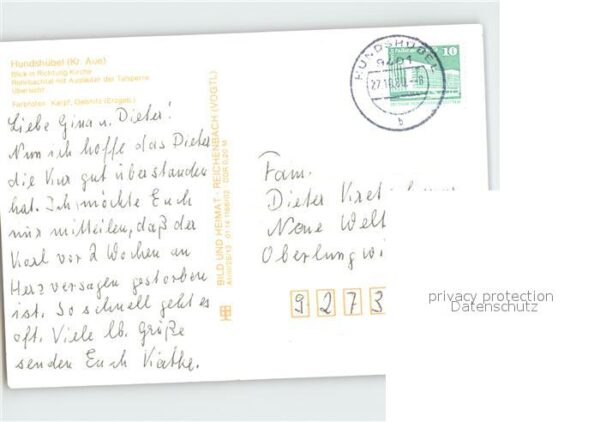 Hundshübel (Kr. Aue)
Blick in Richtung Kirche
Rohrbachtal mit Ausläufer der Talsperre
Übersicht
Farbfotos: Karpf, Oelsnitz (Erzgeb.)
Liebe Gina u. Dieter!
Nun ich hoffe das Dieter
die Kur gut überstanden
hat. Ich möchte Euch
nur mitteilen, daß der
Karl vor 2 Wochen an
Herzversagen gestorben
ist. So schnell geht es
oft. Viele lb. Grüße
senden Euch Kätke.
BILD UND HEIMAT · REICHENBACH (VOGTL)
DDR 0,20 M
HUNDSHÜBEL
9401
27.10.80.-8
b
10
Fam.
Dieter
Neue Welt
Oberlungwi
9273
privacy protection
Datenschutz